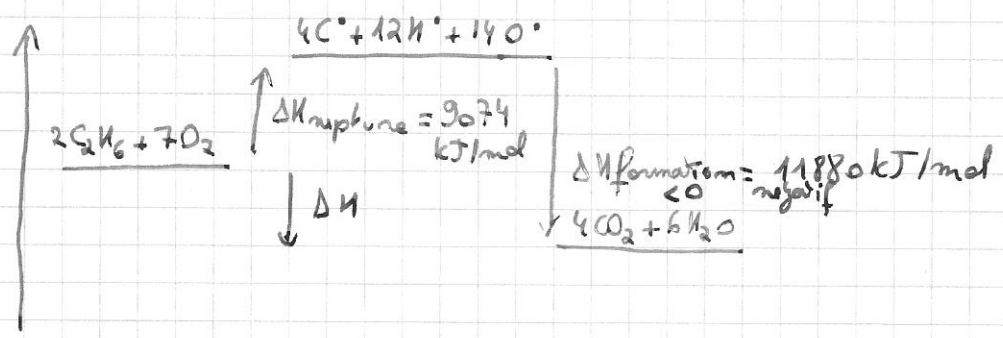 4C° + 12H° + 14O°
2C₂H₆ + 7O₂
ΔHrupture = 9074
kJ/mol
ΔH
ΔHformation = 11880 kJ/mol
<0 négatif
4CO₂ + 6H₂O